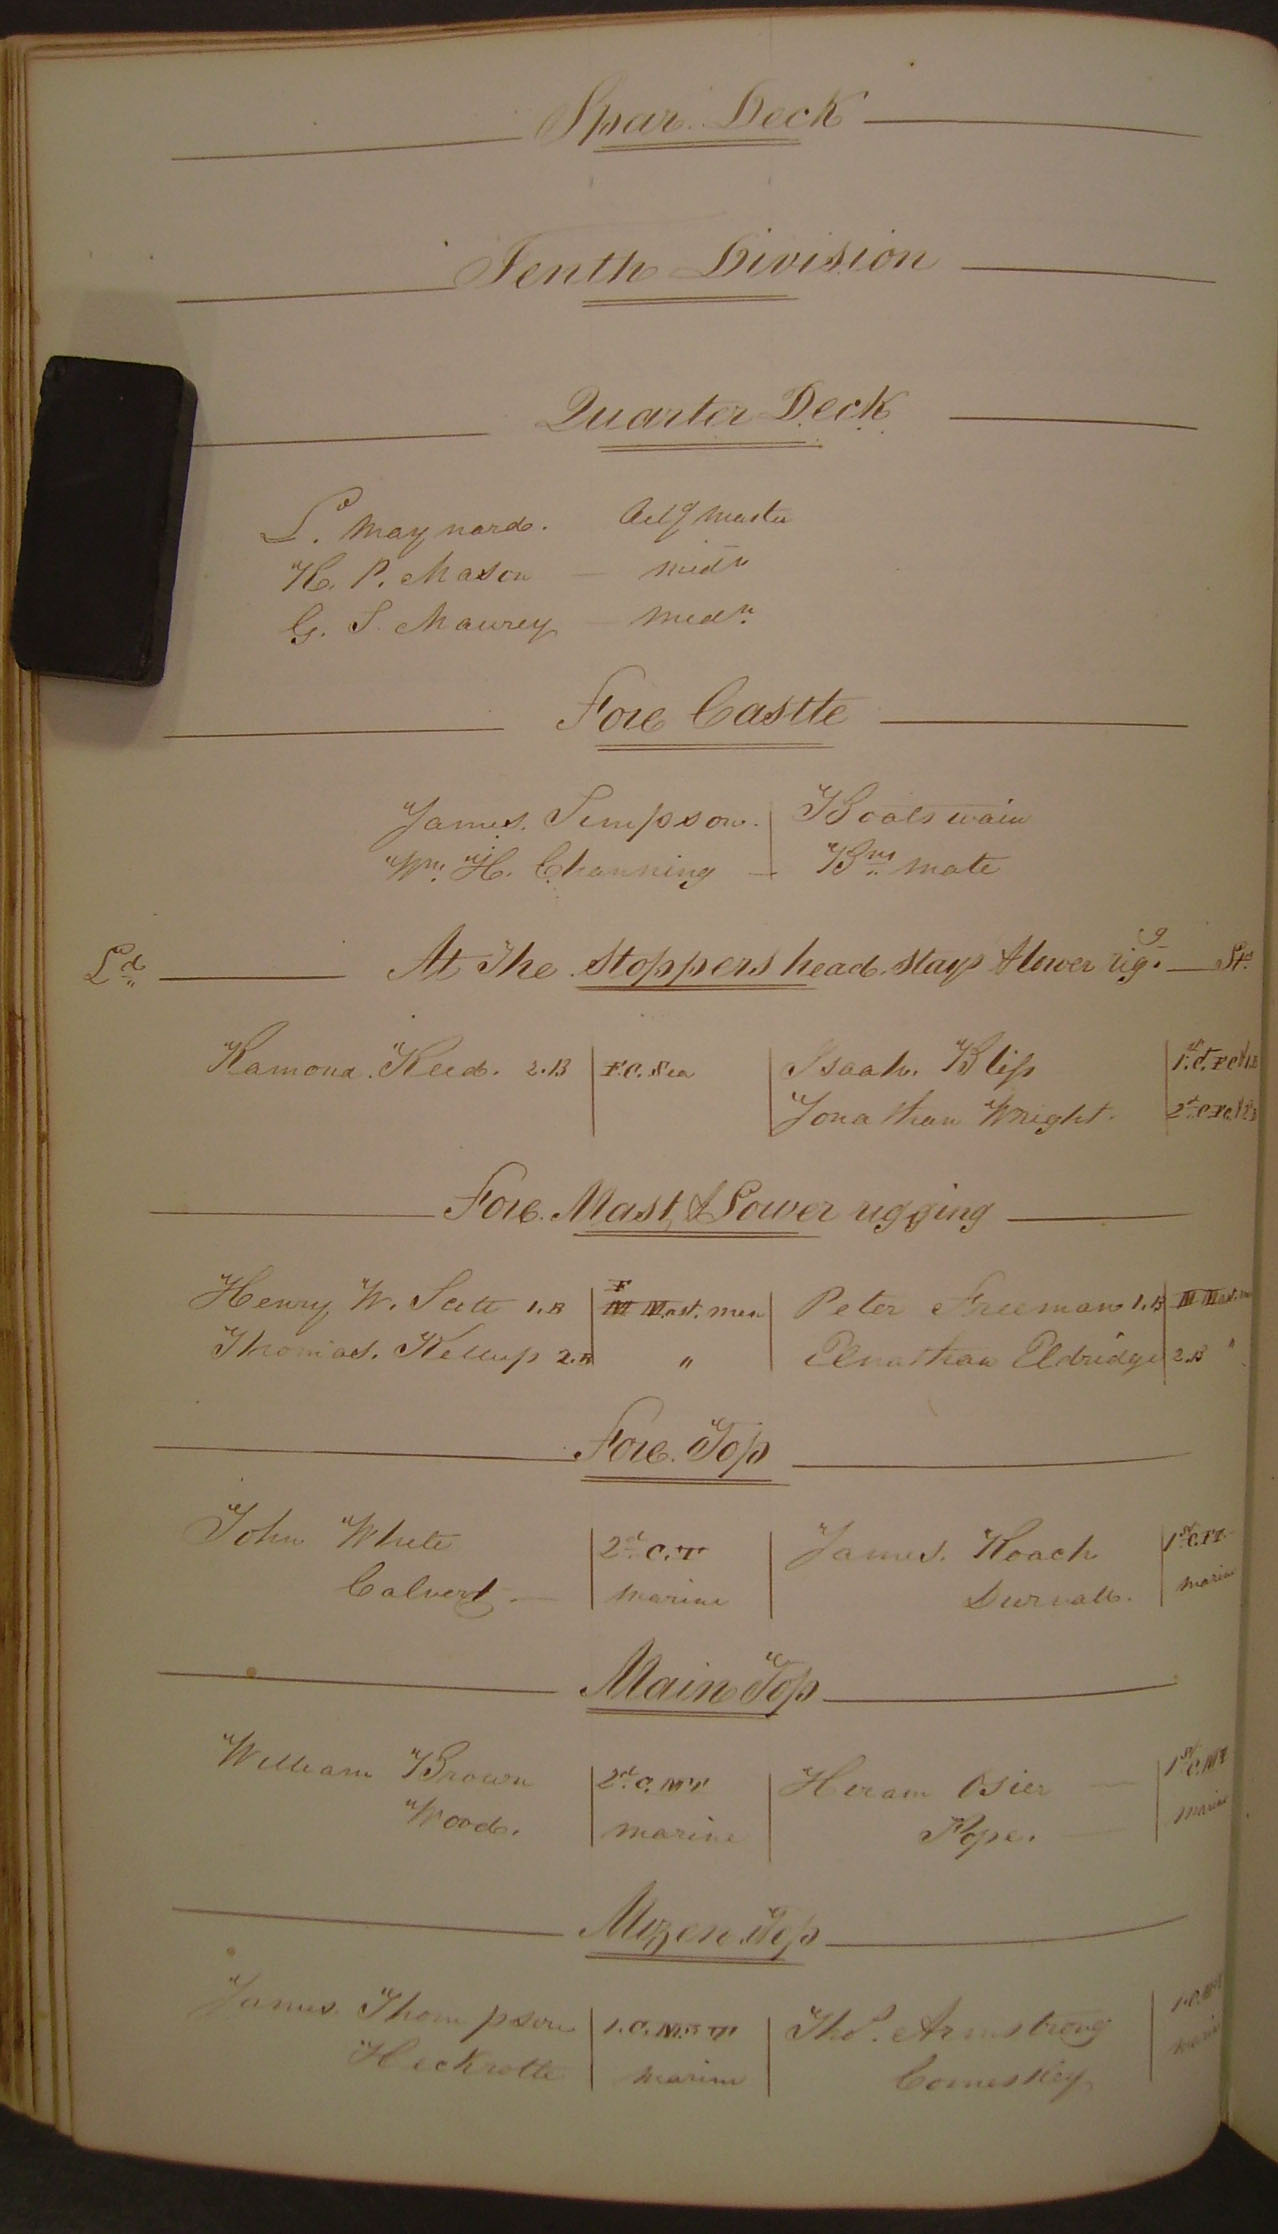 Spar Deck
Tenth Division
Quarter Deck
L. Maynard. Act'g Master
H. P. Mason — Midn
G. S. Maurey — Midn
Fore Castle
James. Simpson. Boatswain
Wm. H. Channing — Bns mate
Ld At The Stoppers head stays & lower rigg. St.
Ramond. Reed. 2.B F.C. Sea Isaah. Blip 1st C. FC 1.B
Jonathan Wright. 2d C FC 1.B
Fore Mast & Lower rigging
Henry W. 1.B F Mast. men Peter Freeman 1.B Mast.
Thomas. Kellup 2.B " Elnathan Eldridge 2.B "
Fore Top
John White 2d C.T James. Roach 1st C.FT.
Calvert — marine Durvall. marine
Main Top
William Brown 2d C. MT Hiram Osier — 1st C. MT
Wood. marine Pope. — marine
Mizen Top
James Thompson 1.C. Mn T Thos. Armstrong 1.C.
Heckrotte marine Comeskey marine